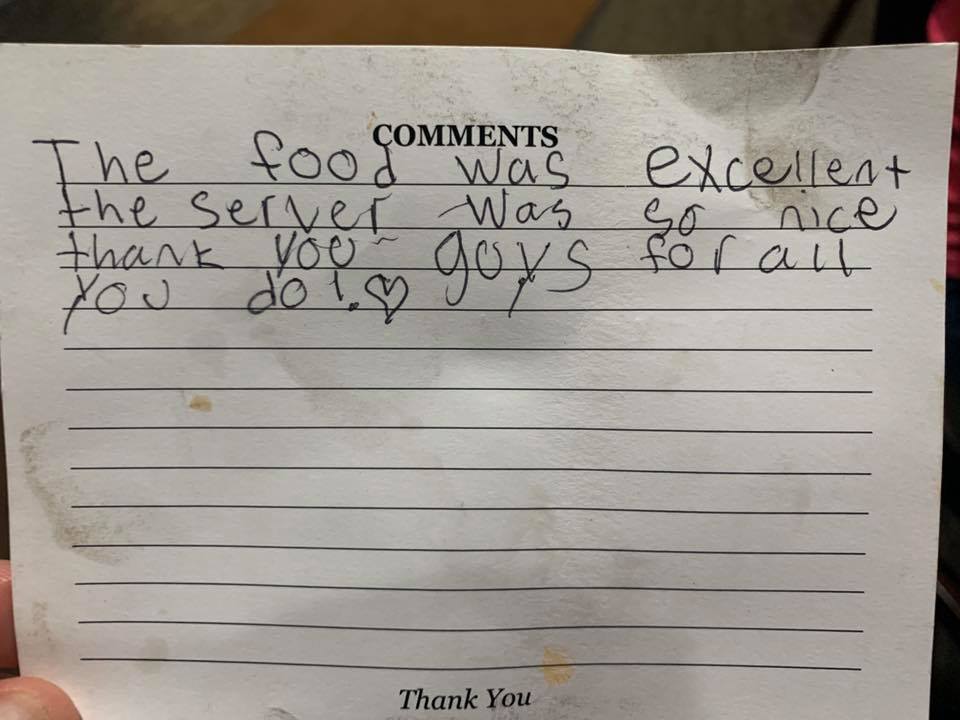 COMMENTS
The food was excellent
the server was so nice
thank you guys for all
you do!♡
Thank You